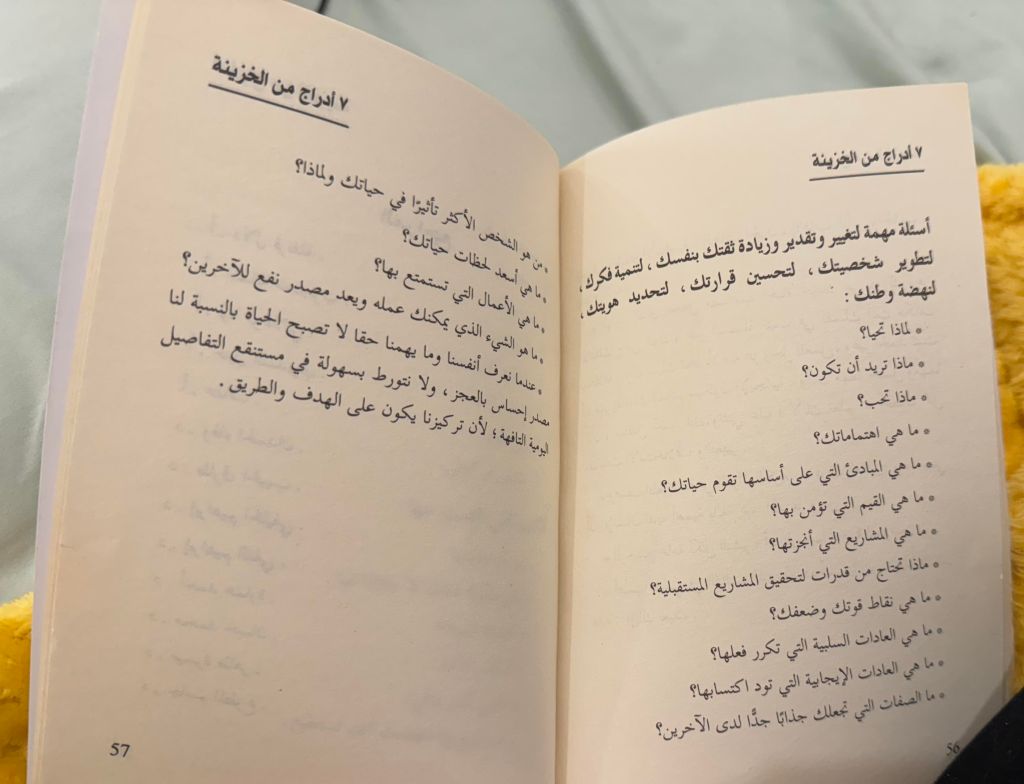 ٧ أدراج من الخزينة
أسئلة مهمة لتغيير وتقدير وزيادة ثقتك بنفسك ، لتنمية فكرك ،
لتطوير شخصيتك ، لتحسين قرارتك ، لتحديد هويتك ،
لنهضة وطنك :
* لماذا تحيا؟
* ماذا تريد أن تكون؟
* ماذا تحب؟
* ما هي اهتماماتك؟
* ما هي المبادئ التي على أساسها تقوم حياتك؟
* ما هي القيم التي تؤمن بها؟
* ما هي المشاريع التي أنجزتها؟
* ماذا تحتاج من قدرات لتحقيق المشاريع المستقبلية؟
* ما هي نقاط قوتك وضعفك؟
* ما هي العادات السلبية التي تكرر فعلها؟
* ما هي العادات الإيجابية التي تود اكتسابها؟
* ما الصفات التي تجعلك جذابًا جدًّا لدى الآخرين؟
56
٧ أدراج من الخزينة
* من هو الشخص الأكثر تأثيرًا في حياتك ولماذا؟
* ما هي أسعد لحظات حياتك؟
* ما هي الأعمال التي تستمتع بها؟
* ما هو الشيء الذي يمكنك عمله ويعد مصدر نفع للآخرين؟
* عندما نعرف أنفسنا وما يهمنا حقا لا تصبح الحياة بالنسبة لنا
مصدر إحساس بالعجز ، ولا نتورط بسهولة في مستنقع التفاصيل
اليومية التافهة ؛ لأن تركيزنا يكون على الهدف والطريق .
57